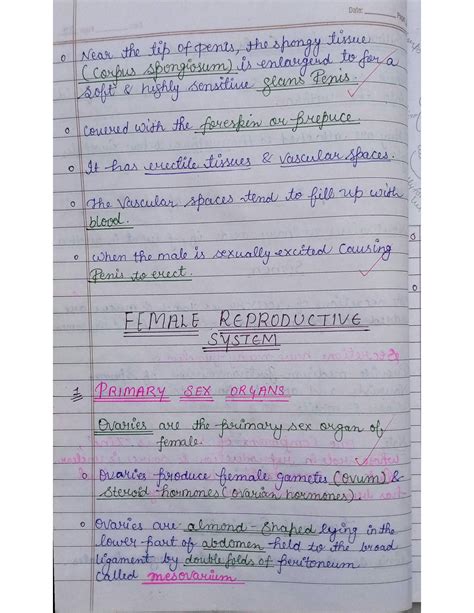 Date:
o Near the tip of penis, the spongy tissue
(corpus spongiosum) is enlarged to for a
soft & highly sensitive glans Penis.
o Covered with the foreskin or prepuce.
o It has erectile tissues & vascular spaces.
o The vascular spaces tend to fill up with
blood.
o when the male is sexually excited causing
Penis to erect
FEMALE REPRODUCTIVE
SYSTEM
1 PRIMARY SEX ORGANS
Ovaries are the primary sex organ of
female.
o Ovaries produce female gametes (ovum) &
Steroid-hormones (ovarian hormones)
o Ovaries are almond-shaped lying in the
lower-part of abdomen held to the broad
ligament by double folds of peritoneum
called mesovarium